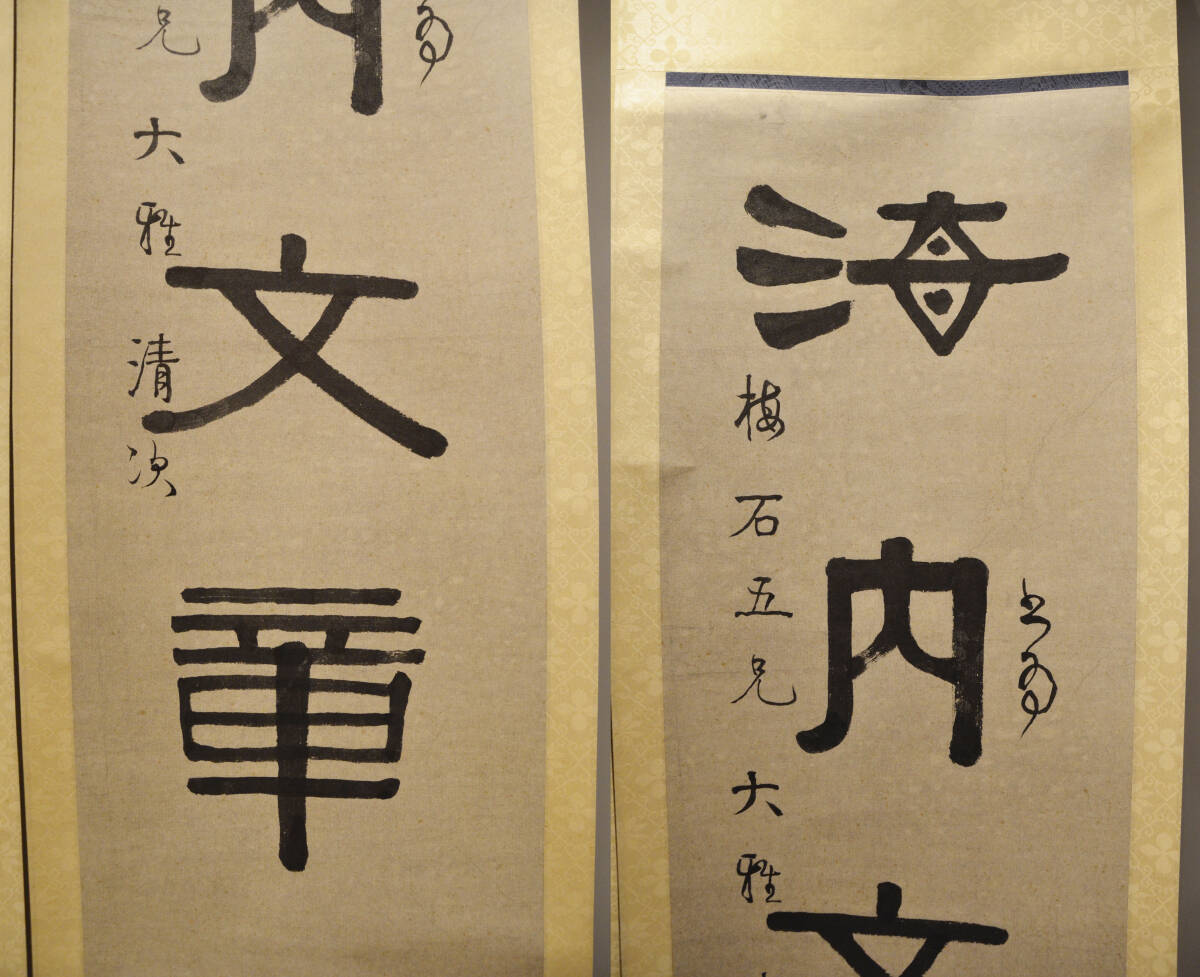 内文章
兄大雅清次
海内文
梅石五兄大雅